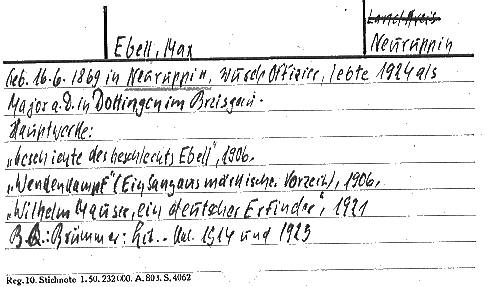 Landkreis
Ebell, Max
Neuruppin
Geb. 16.6. 1869 in Neuruppin, wusch Offizier, lebte 1924 als
Major a.D. in Dottingen im Breisgau.
Hauptwerke:
„Geschichte des Geschlechts Ebell", 1906.
„Wendenkampf" (Ein Sang aus märkischer Vorzeit), 1906.
„Wilhelm Bauser, ein deutscher Erfinder", 1921
B.Q.: Brümmer: Lit. - Kal. 1914 und 1923
Reg. 10. Stichnote 1. 50. 232000. A. 803. S. 4062